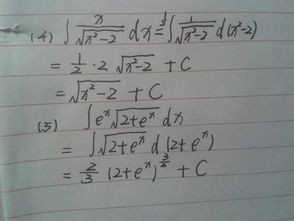 (4) ∫ x/√(x²-2) dx = ½∫ 1/√(x²-2) d(x²-2)
= 1/2 · 2 √(x²-2) + C
= √(x²-2) + C
(5) ∫ eˣ√(2+eˣ) dx
= ∫ √(2+eˣ) d(2+eˣ)
= 2/3 (2+eˣ)^(3/2) + C